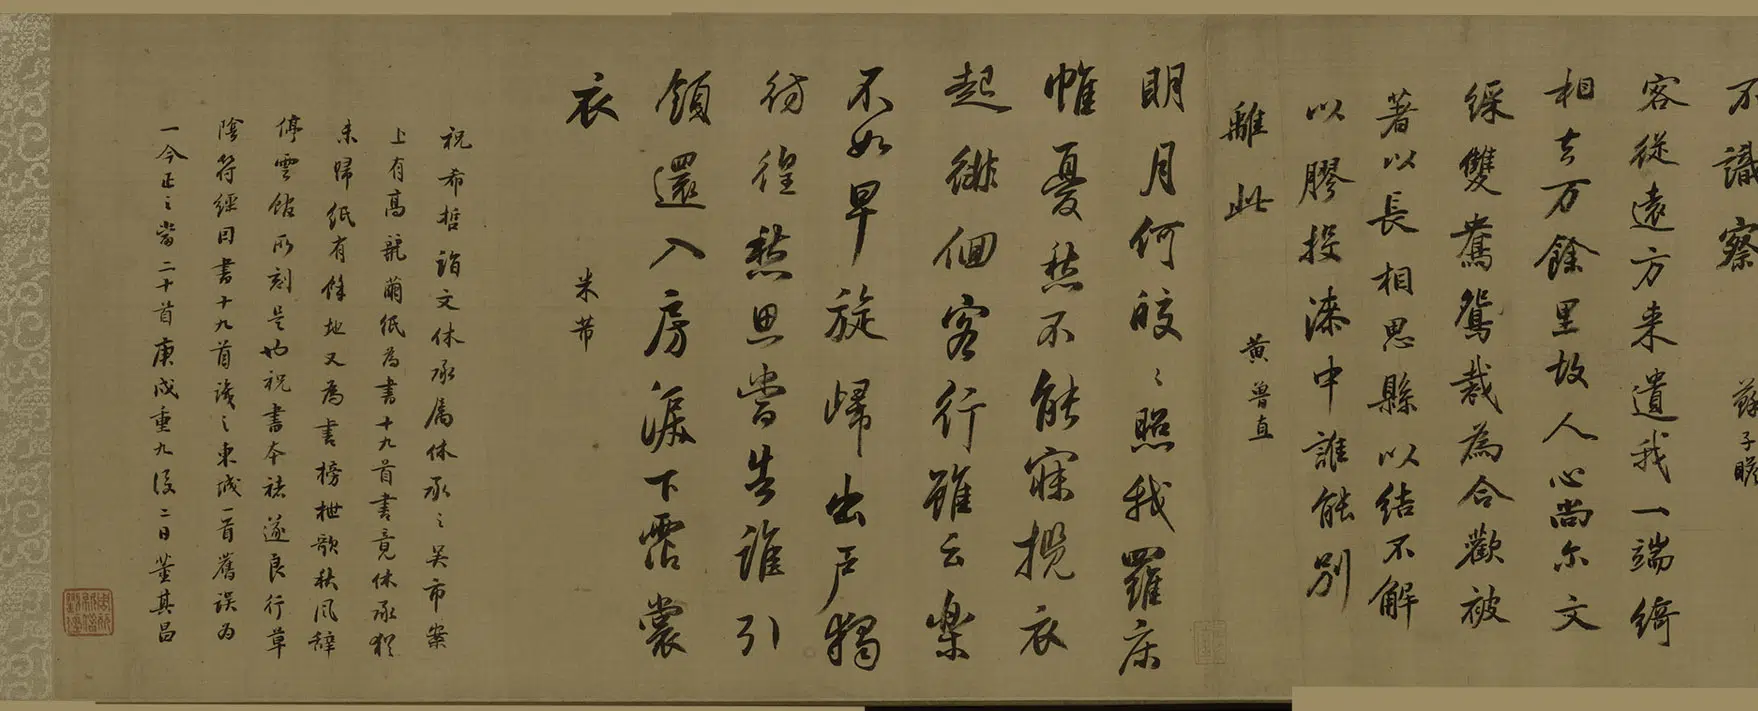 不識察 蘇子瞻
客從遠方来遺我一端綺
相去万餘里故人心尚尓文
綵雙鴛鴦裁為合歡被
著以長相思緣以結不解
以膠投漆中誰能別
離此 黄魯直
明月何皎〻照我羅床
幃憂愁不能寐攬衣
起徘徊客行雖云樂
不如早旋歸出戶獨
彷徨愁思當告誰引
領還入房淚下霑裳
衣 米芾
祝希哲詣文休承属休承之吴市案
上有高麗繭紙為書十九首書竟休承猶
未歸紙有餘地又為書榜枻歌秋風辭
停雲館所刻是也祝書本褚遂良行草
陰符經因書十九首議之東城一首舊誤為
一今正之當二十首庚戌重九後二日董其昌